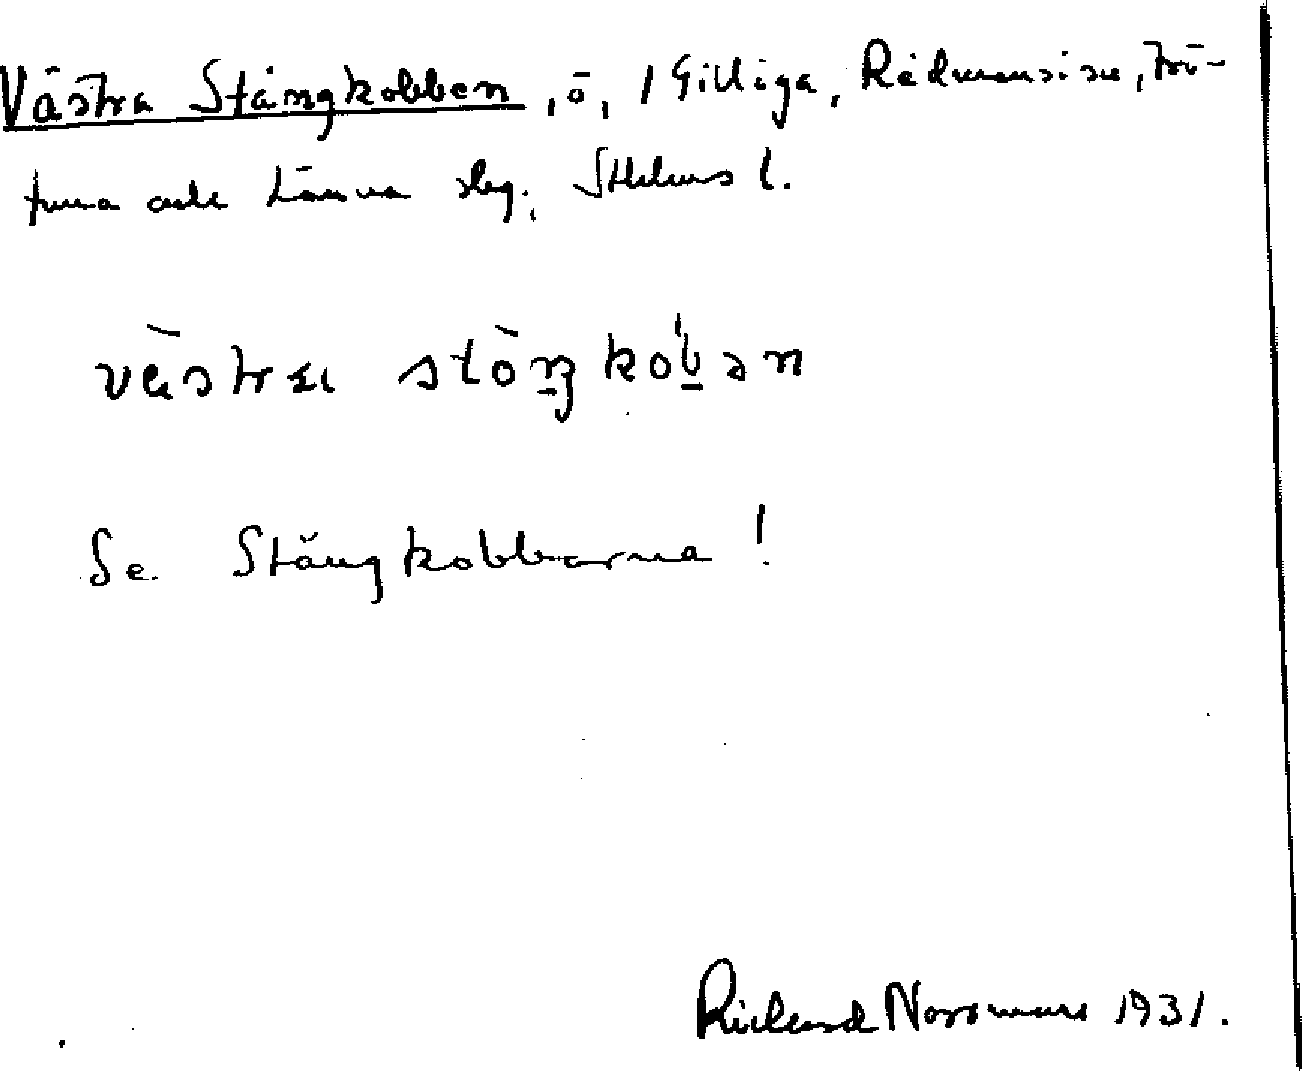 Västra Stångkobben, ö, 1 Gilliga, Rådmansö sn, Frö-
tuna och Länna skg., Sthlms l.
västra stòŋkòb̲ən
Se Stångkobbarna!
Rickard Norrman 1931.